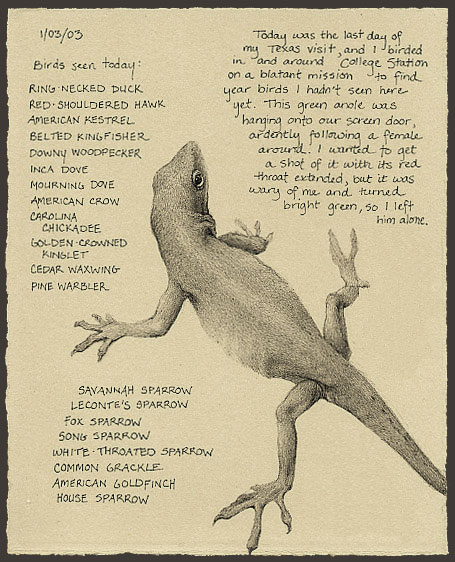 1/03/03
Birds seen today:
RING-NECKED DUCK
RED-SHOULDERED HAWK
AMERICAN KESTREL
BELTED KINGFISHER
DOWNY WOODPECKER
INCA DOVE
MOURNING DOVE
AMERICAN CROW
CAROLINA
CHICKADEE
GOLDEN-CROWNED
KINGLET
CEDAR WAXWING
PINE WARBLER
SAVANNAH SPARROW
LECONTE'S SPARROW
FOX SPARROW
SONG SPARROW
WHITE-THROATED SPARROW
COMMON GRACKLE
AMERICAN GOLDFINCH
HOUSE SPARROW
Today was the last day of
my Texas visit, and I birded
in and around College Station
on a blatant mission to find
year birds I hadn't seen here
yet. This green anole was
hanging onto our screen door,
ardently following a female
around. I wanted to get
a shot of it with its red
throat extended, but it was
wary of me and turned
bright green, so I left
him alone.